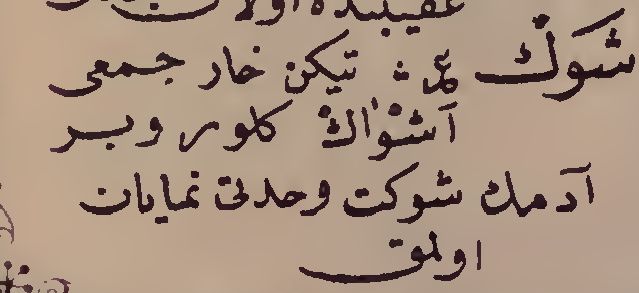 عقیبنده اولان
شَوْكٌ عم تیكن خار جمعی
اَشْوَاكْ كلور و بر
آدمك شوكت و حدتی نمایان
اولمق